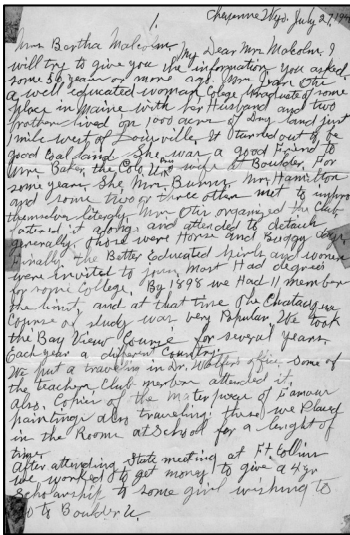 1.
Cheyenne Wyo. July 27, 194
Mrs. Bertha Malcolm, My Dear Mrs. Malcolm. I
will try to give you the information you asked.
some 50 years or more ago. Mrs. Otis
a well educated woman Colege Graduate of some
place in Maine with her Husband and two
brothers lived on 1000 acres of Dry land just
1 mile west of Louisville. It turned out to be
good Coal land. She was a good Friend to
Mrs. Baker, the Colo Uni Pres wife at Boulder. For
some years She, Mrs. Burns, Mrs. Hamilton
and some two or three other met to improve
themselves literaly. Mrs Otis organized the Club
fattened it along and attended to details
generally. Those were Horse and Buggy days
Finally the Better Educated Girls and women
were invited to join, Most Had degrees
from some College. By 1898 we Had 11 members
the limit, and at that time The Chatauqua
Course of study was very Popular. We took
the Bay View Course for several years.
Each year a different Country.
We put a traveling in Dr. Wolfers office. some of
the teachers Club members attended it.
also. Copies of the masterpiece of Famous
paintings also traveling these we Placed
in the Rooms at School for a lenght of
time
After attending State meeting at Ft Collins
we worked to get money to give a 4 yr
Scholarship to some girl wishing to
go to Boulder U.